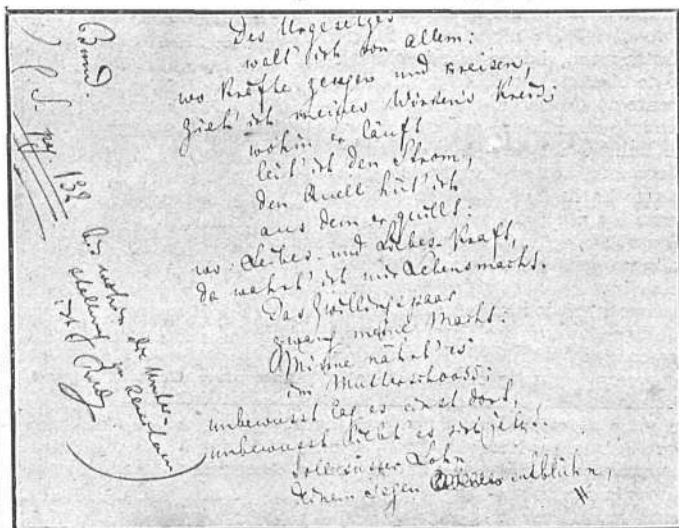 Des Urgesetzes
walt' ich vor allem:
wo Kräfte zeugen und kreisen,
zieh' ich meines Wirkens Kreis;
wohin er läuft
leit' ich den Strom,
den Quell hüt' ich
aus dem er quillt:
wo Leibes- und Liebes-Kraft,
da wahrt' ich mir Lebensmacht.
Das Zwillingspaar
zwang meine Macht:
Minne nährt' es
im Mutterschooss;
unbewusst lag es einst dort,
unbewusst liebt' es sich jetzt.
Soll süsser Lohn
deinem Segen entblühn,
S. pag. 132
bis wohin die